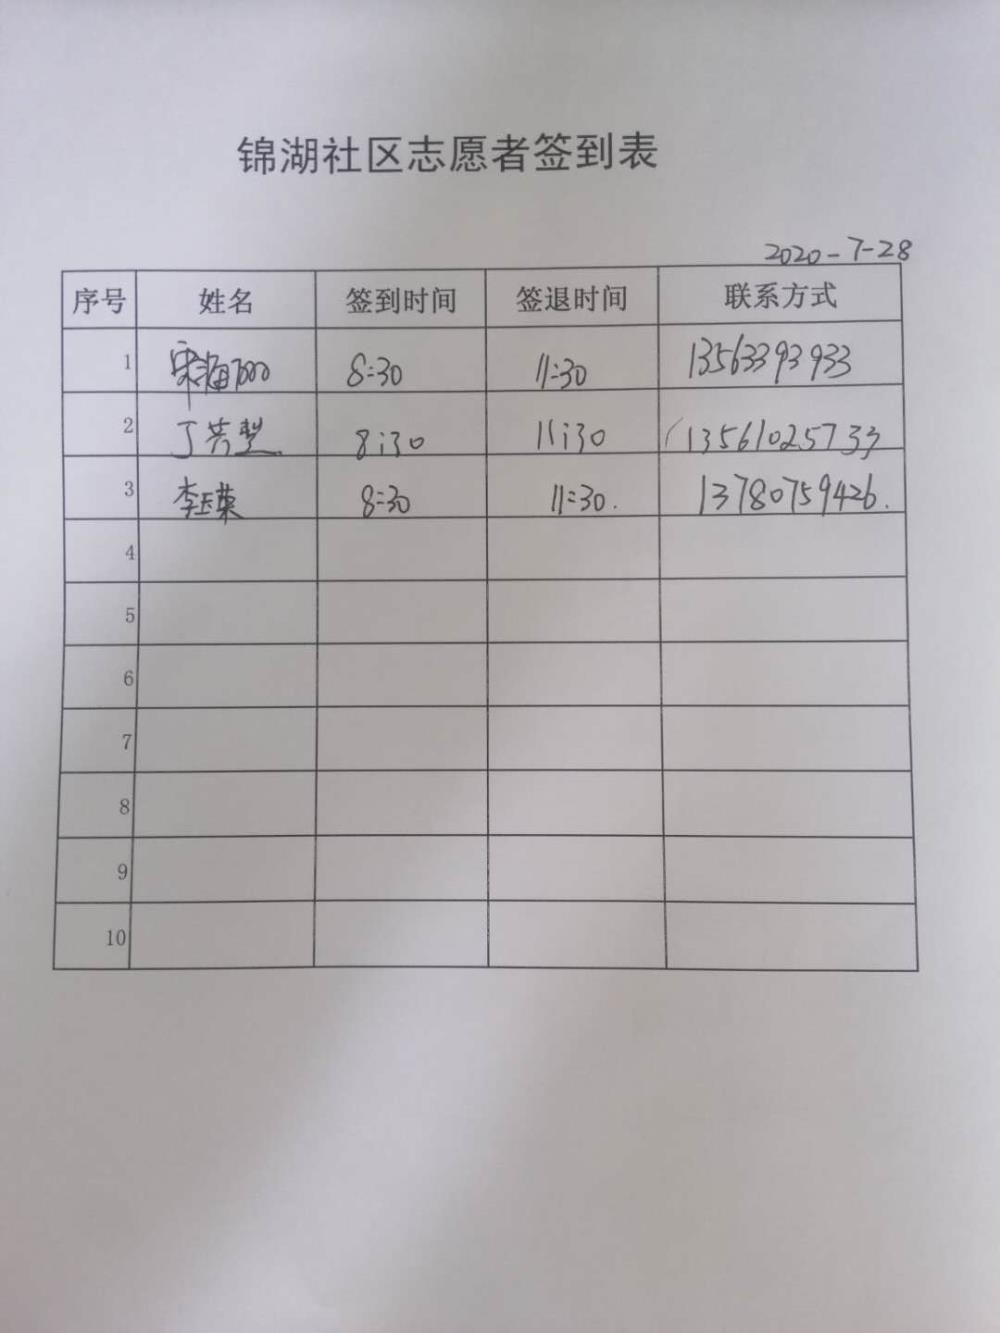 锦湖社区志愿者签到表
2020-7-28
序号 姓名 签到时间 签退时间 联系方式
1 宋海 8:30 11:30 13563393933
2 丁芳 8:30 11:30 13561025733
3 李玉英 8:30 11:30. 13780759426.
4
5
6
7
8
9
10